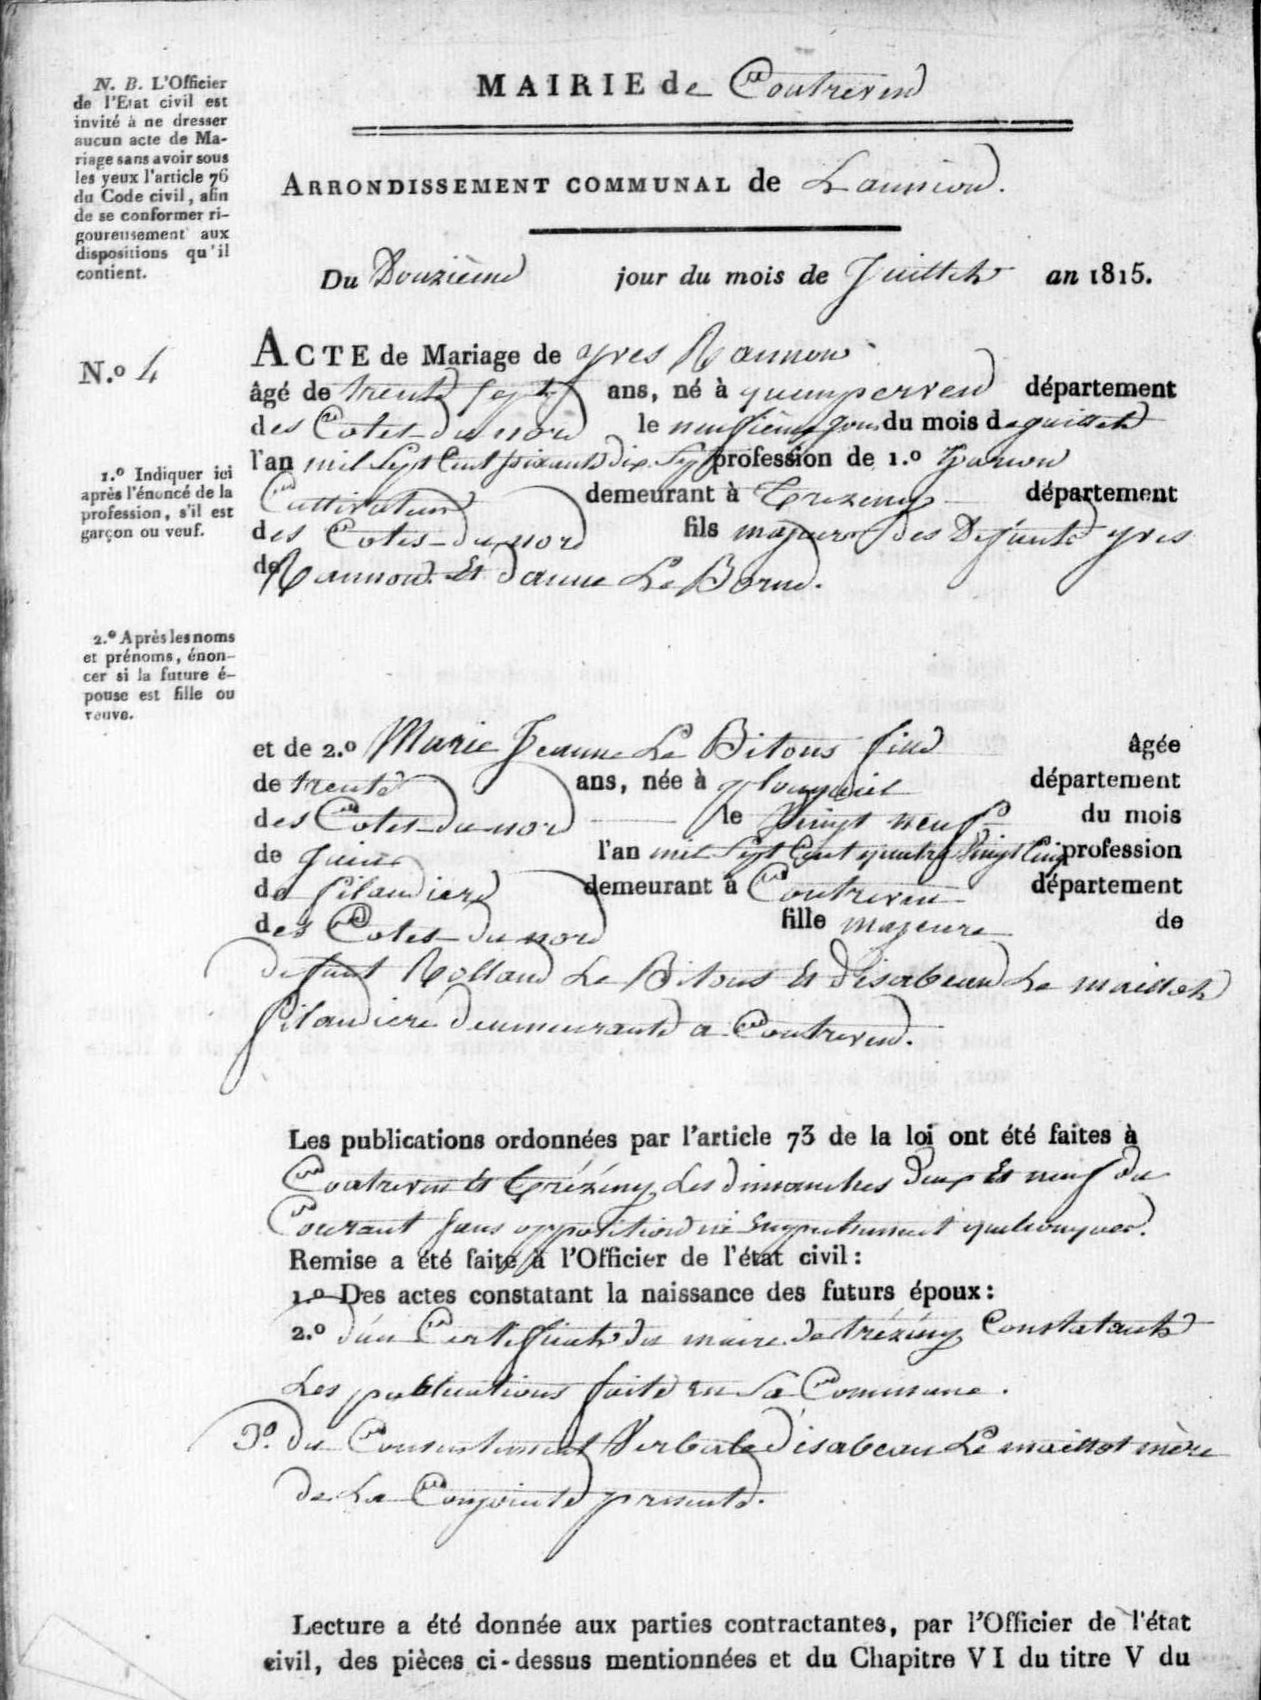 MAIRIE de Coatreven
N. B. L'Officier
de l'Etat civil est
invité à ne dresser
aucun acte de Ma-
riage sans avoir sous
les yeux l'article 76
du Code civil, afin
de se conformer ri-
goureusement aux
dispositions qu'il
contient.
ARRONDISSEMENT COMMUNAL de Lannion.
Du Douzième jour du mois de Juillet an 1815.
N.º 4
ACTE de Mariage de yves Rannou
âgé de trente sept ans, né à quemperven département
des Cotes-du-nord le neufième jour du mois de juillet
l'an mil sept Cent soixante dix-Sept profession de 1.º garçon
Cultivateur demeurant à Trézeny département
des Cotes-du-nord fils majeur des Defunts yves
de Rannou Et d'anne Le Borne.
1.º Indiquer ici
après l'énoncé de la
profession, s'il est
garçon ou veuf.
2.º Après les noms
et prénoms, énon-
cer si la future é-
pouse est fille ou
veuve.
et de 2.º Marie Jeanne Le Bitous fille âgée
de trente ans, née à plouguiel département
des Cotes-du-nord le vingt neuf du mois
de Juin l'an mil Sept Cent quatre vingt Cinq profession
de filandière demeurant à Coatreven département
des Cotes-du-nord fille majeure de
defunt Rolland Le Bitous Et D'isabeau Le maillot
filandiere demeurante a Coatreven.
Les publications ordonnées par l'article 73 de la loi ont été faites à
Coatreven Et Trézény Les dimanches deux Et neuf du
Courant Sans opposition ni Empechement quelconques.
Remise a été faite à l'Officier de l'état civil :
1.º Des actes constatant la naissance des futurs époux :
2.º d'un Certificat du maire de trézény Constatant
Les publications faite en Sa Commune.
3º. du Consentement Verbale d'isabeau Le maillot mère
de La Conjointe presente.
Lecture a été donnée aux parties contractantes, par l'Officier de l'état
civil, des pièces ci-dessus mentionnées et du Chapitre VI du titre V du